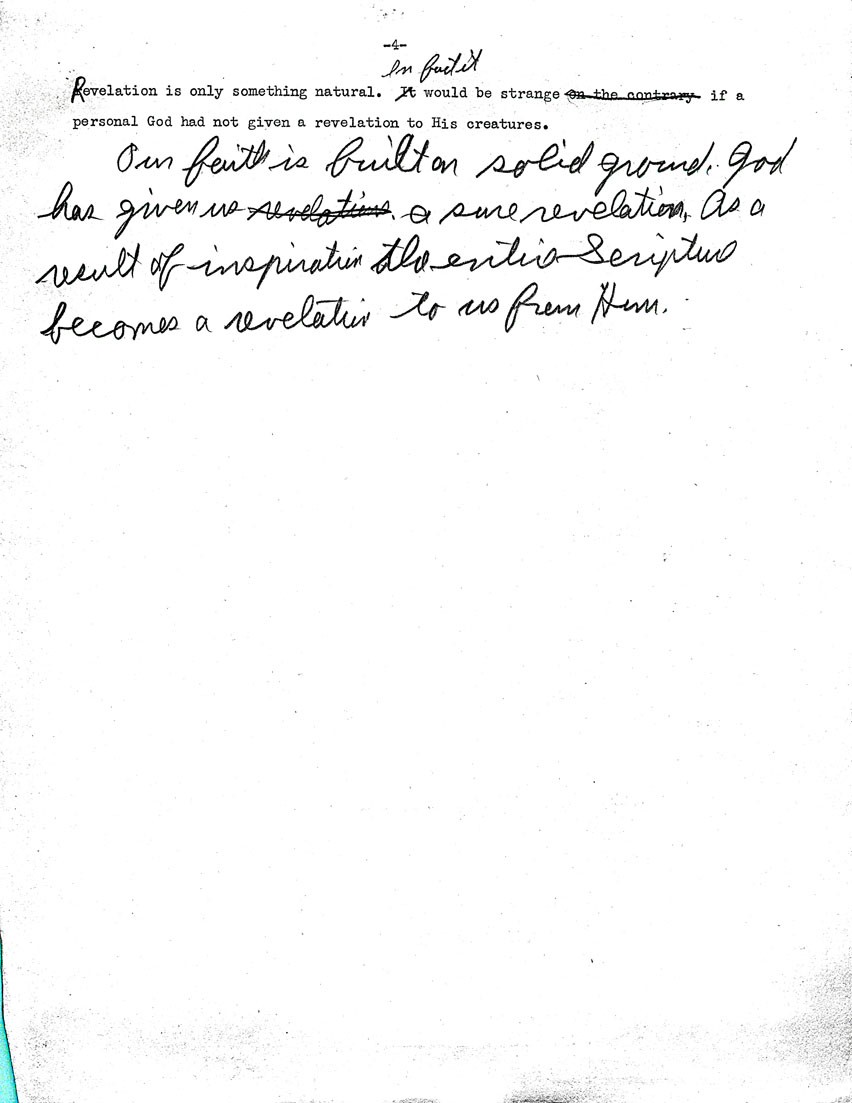 -4-
In fact it
Revelation is only something natural. It would be strange on the contrary if a
personal God had not given a revelation to His creatures.
Our faith is built on solid ground. God
has given us revelations a sure revelation. As a
result of inspiration the entire Scripture
becomes a revelation to us from Him.